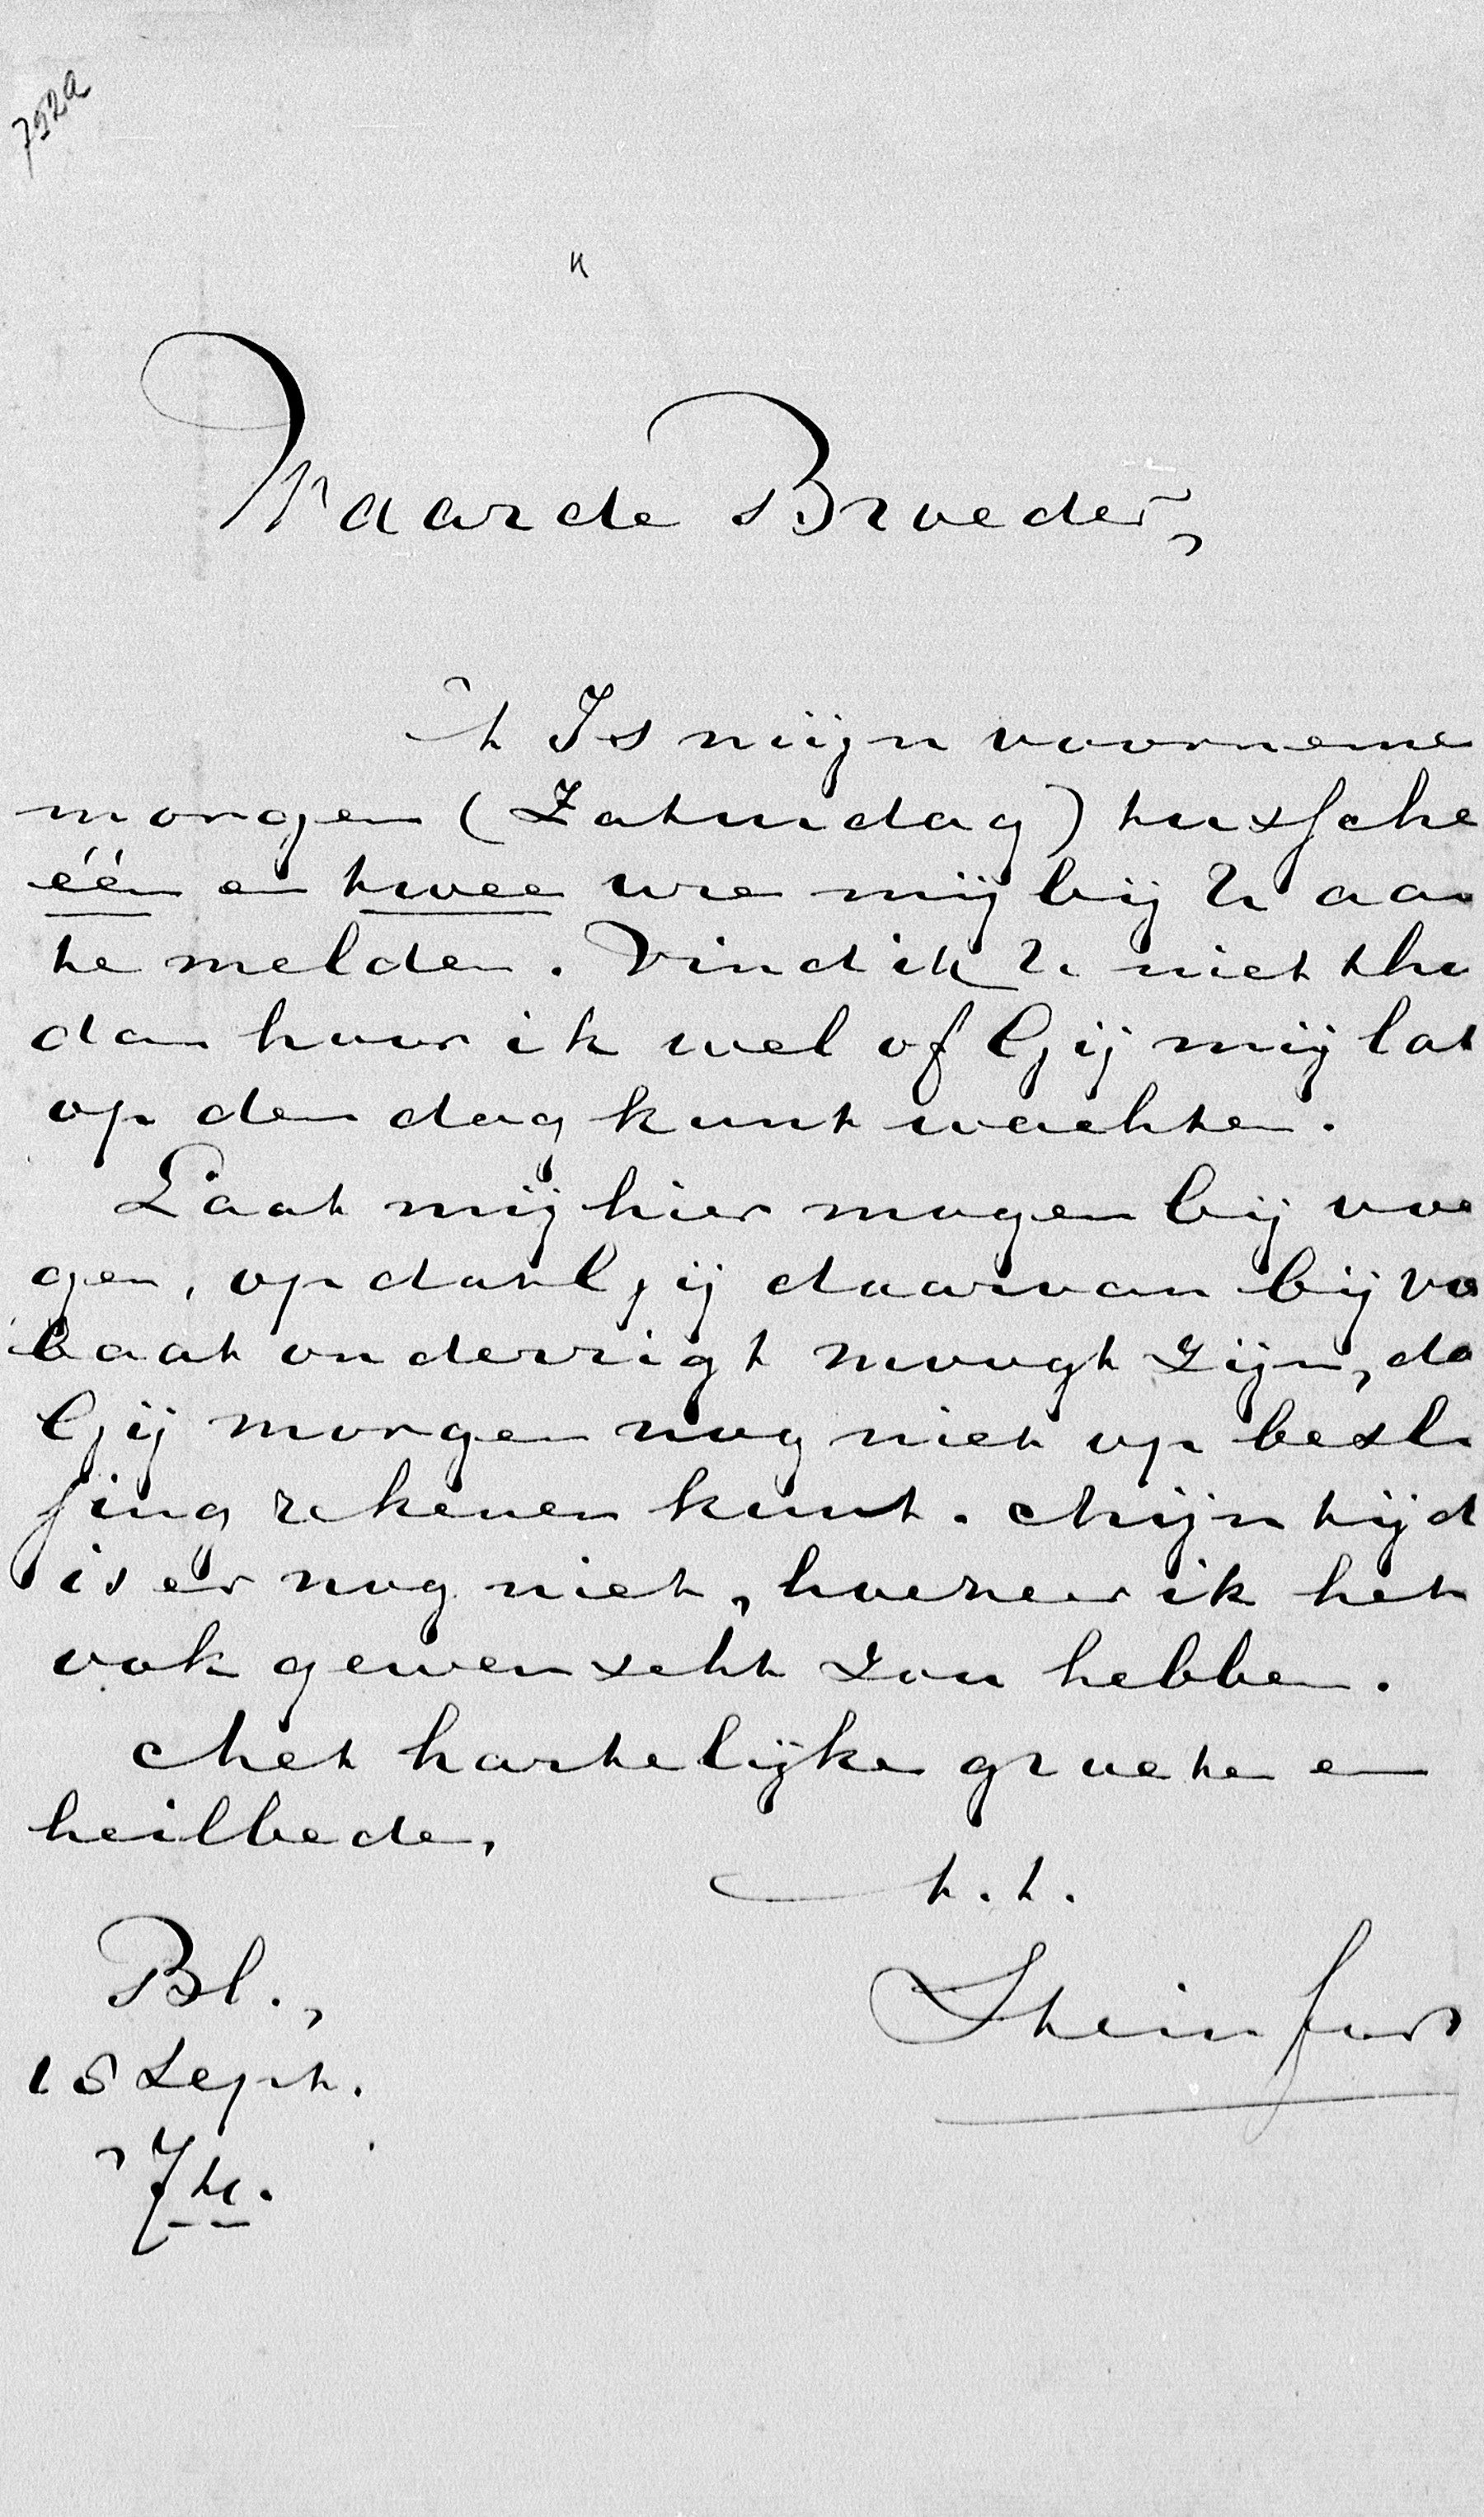 752a
Waarde Broeder,
't Is mijn voorneme
morgen (Zaturdag) tussche
één en twee ure mij bij U aan
te melden. Vind ik U niet thu
dan hoor ik wel of Gij mij lat
op den dag kunt wachten.
Laat mij hier mogen bij voe
gen, opdat Gij daarvan bij vo
baat onderrigt moogt zijn, da
Gij morgen nog niet op besl
sing rekenen kunt. Mijn tijd
is er nog niet, hoezeer ik het
ook gewenscht zou hebben.
Met hartelijke groeten en
heilbede,
t.t.
Bl.,
18 Sept.